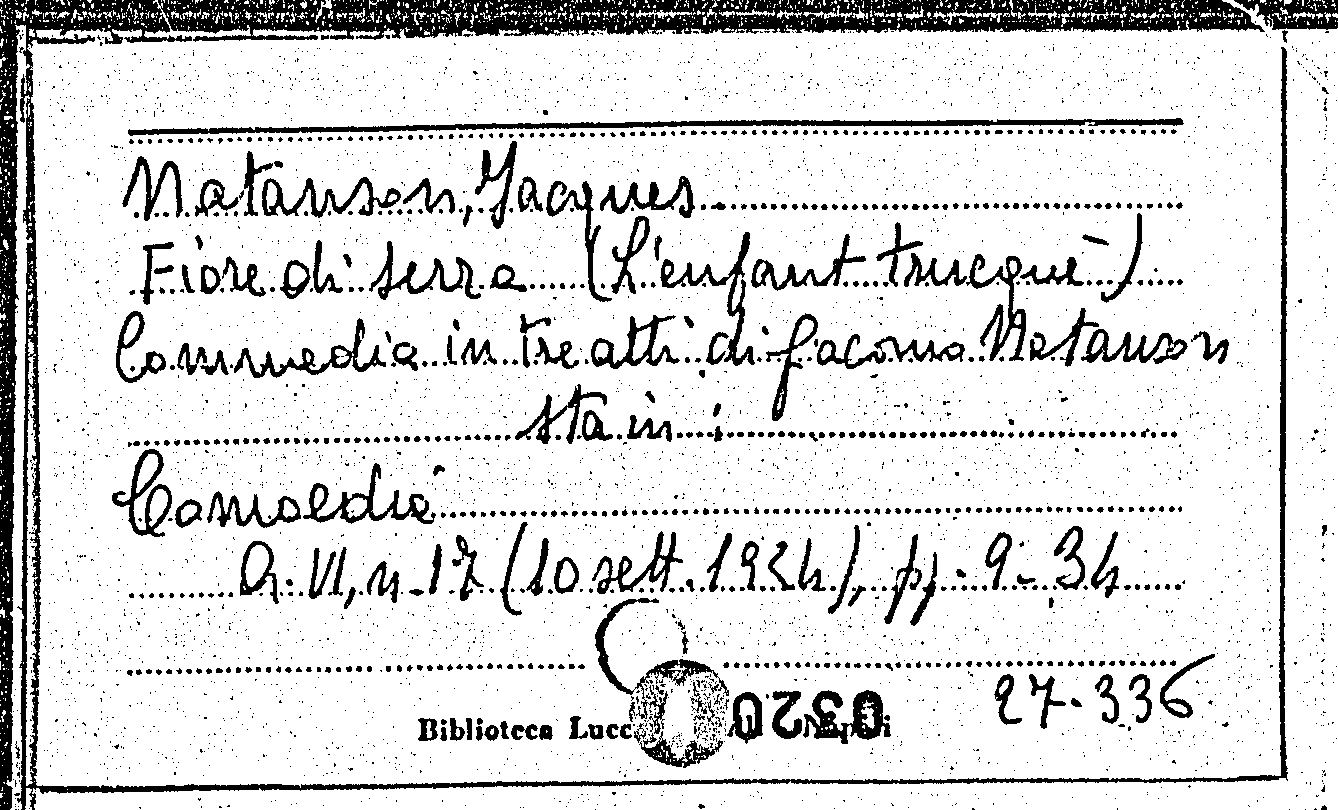 Natanson, Jacques
Fiore di serra (L'enfant truequé)
Commedia in tre atti di Giacomo Natanson
sta in:
Comoedia
A. VI, n. 17 (10 sett. 1924), pp. 9-34
27-336
Biblioteca Lucc
0320